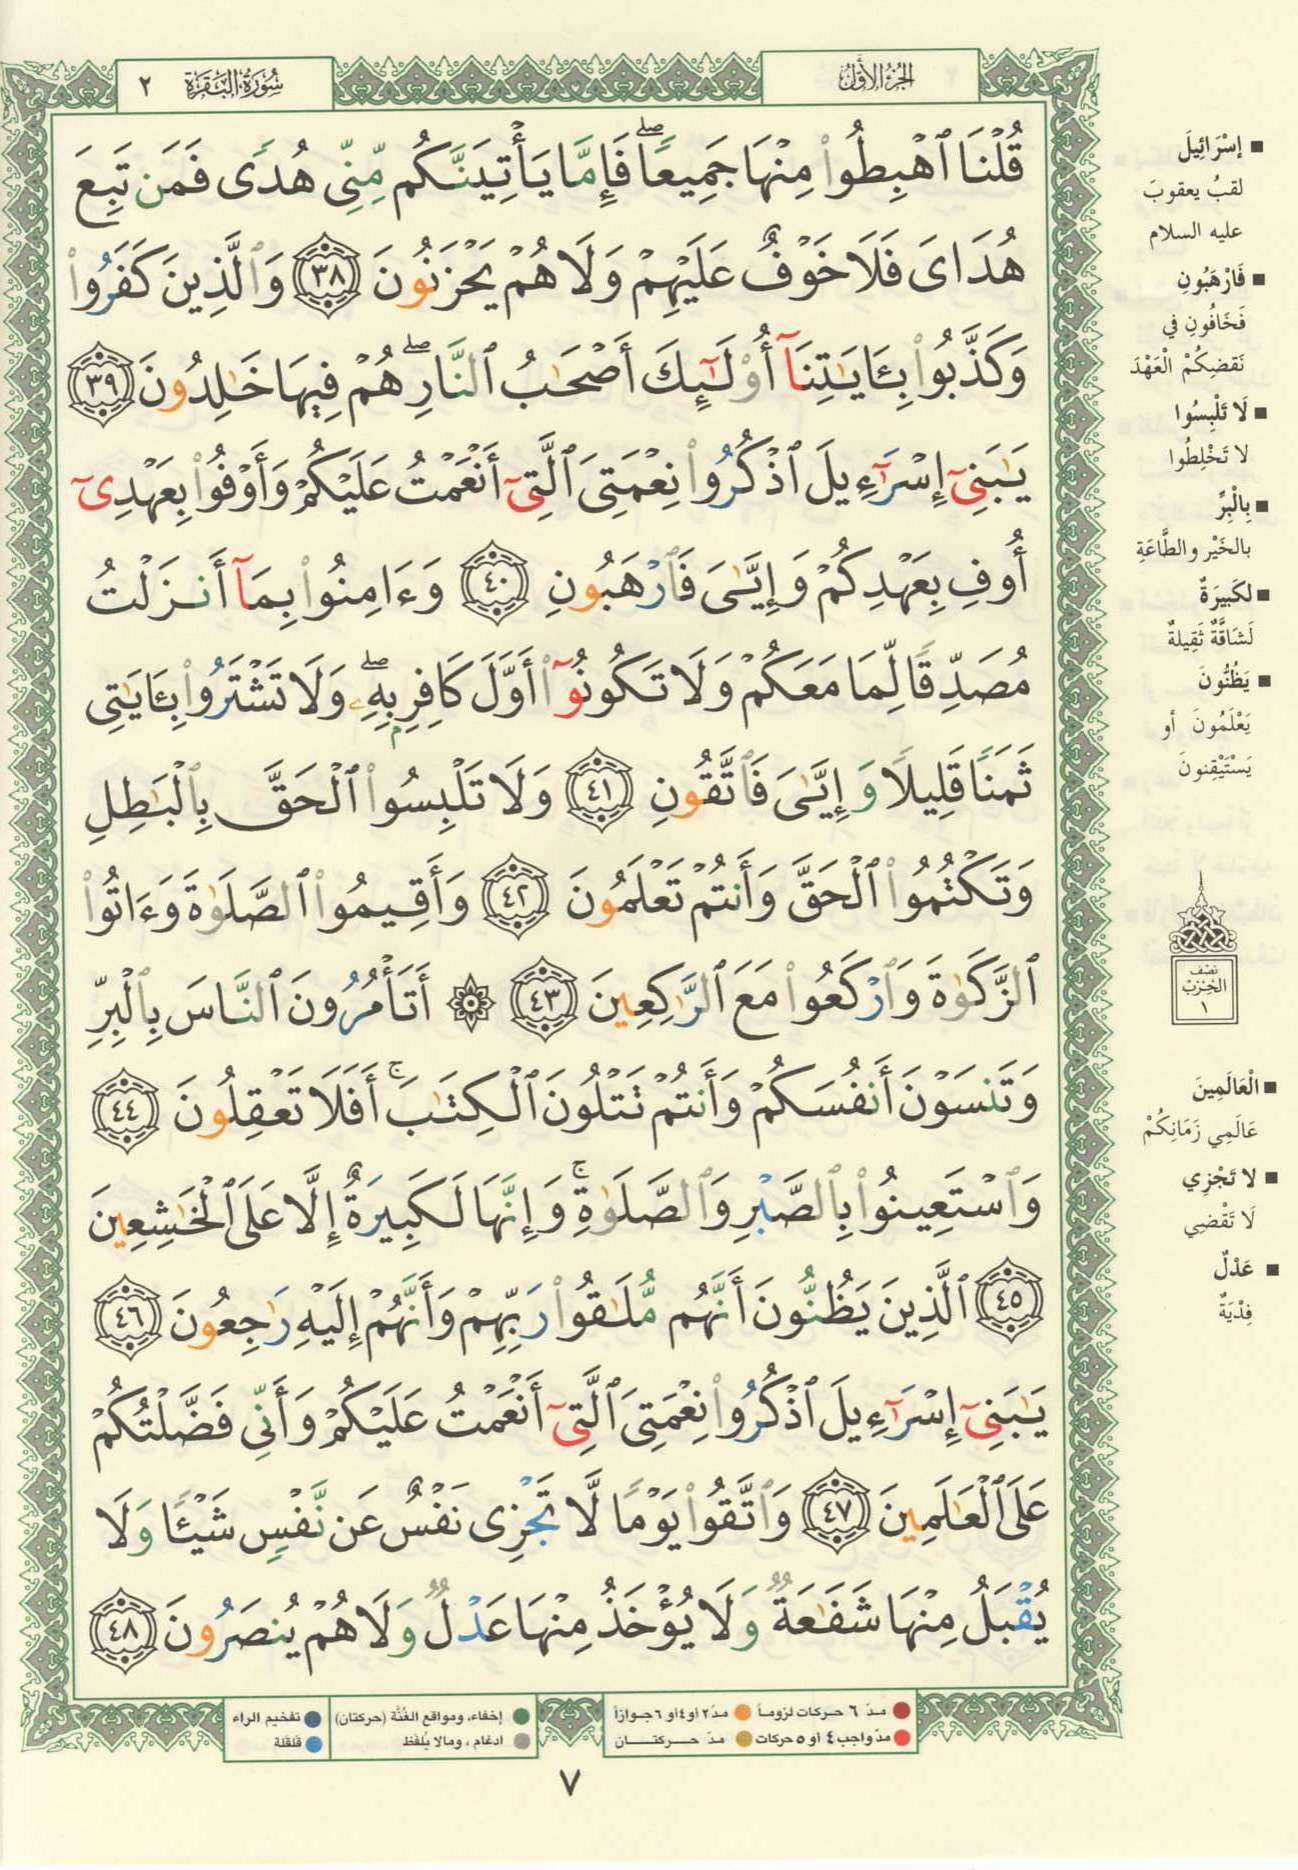 الجزء الأول
سورة البقرة ٢
قُلْنَا ٱهْبِطُوا۟ مِنْهَا جَمِيعًا ۖ فَإِمَّا يَأْتِيَنَّكُم مِّنِّى هُدًى فَمَن تَبِعَ
هُدَاىَ فَلَا خَوْفٌ عَلَيْهِمْ وَلَا هُمْ يَحْزَنُونَ ٣٨ وَٱلَّذِينَ كَفَرُوا۟
وَكَذَّبُوا۟ بِـَٔايَـٰتِنَآ أُو۟لَـٰٓئِكَ أَصْحَـٰبُ ٱلنَّارِ ۖ هُمْ فِيهَا خَـٰلِدُونَ ٣٩
يَـٰبَنِىٓ إِسْرَٰٓءِيلَ ٱذْكُرُوا۟ نِعْمَتِىَ ٱلَّتِىٓ أَنْعَمْتُ عَلَيْكُمْ وَأَوْفُوا۟ بِعَهْدِىٓ
أُوفِ بِعَهْدِكُمْ وَإِيَّـٰىَ فَٱرْهَبُونِ ٤٠ وَءَامِنُوا۟ بِمَآ أَنزَلْتُ
مُصَدِّقًا لِّمَا مَعَكُمْ وَلَا تَكُونُوٓا۟ أَوَّلَ كَافِرٍۭ بِهِۦ ۖ وَلَا تَشْتَرُوا۟ بِـَٔايَـٰتِى
ثَمَنًا قَلِيلًا وَإِيَّـٰىَ فَٱتَّقُونِ ٤١ وَلَا تَلْبِسُوا۟ ٱلْحَقَّ بِٱلْبَـٰطِلِ
وَتَكْتُمُوا۟ ٱلْحَقَّ وَأَنتُمْ تَعْلَمُونَ ٤٢ وَأَقِيمُوا۟ ٱلصَّلَوٰةَ وَءَاتُوا۟
ٱلزَّكَوٰةَ وَٱرْكَعُوا۟ مَعَ ٱلرَّٰكِعِينَ ٤٣ ۞ أَتَأْمُرُونَ ٱلنَّاسَ بِٱلْبِرِّ
وَتَنسَوْنَ أَنفُسَكُمْ وَأَنتُمْ تَتْلُونَ ٱلْكِتَـٰبَ ۚ أَفَلَا تَعْقِلُونَ ٤٤
وَٱسْتَعِينُوا۟ بِٱلصَّبْرِ وَٱلصَّلَوٰةِ ۚ وَإِنَّهَا لَكَبِيرَةٌ إِلَّا عَلَى ٱلْخَـٰشِعِينَ
٤٥ ٱلَّذِينَ يَظُنُّونَ أَنَّهُم مُّلَـٰقُوا۟ رَبِّهِمْ وَأَنَّهُمْ إِلَيْهِ رَٰجِعُونَ ٤٦
يَـٰبَنِىٓ إِسْرَٰٓءِيلَ ٱذْكُرُوا۟ نِعْمَتِىَ ٱلَّتِىٓ أَنْعَمْتُ عَلَيْكُمْ وَأَنِّى فَضَّلْتُكُمْ
عَلَى ٱلْعَـٰلَمِينَ ٤٧ وَٱتَّقُوا۟ يَوْمًا لَّا تَجْزِى نَفْسٌ عَن نَّفْسٍ شَيْـًٔا وَلَا
يُقْبَلُ مِنْهَا شَفَـٰعَةٌ وَلَا يُؤْخَذُ مِنْهَا عَدْلٌ وَلَا هُمْ يُنصَرُونَ ٤٨
■ إسْرَائِيلَ
لقبُ يعقوبَ
عليه السلام
■ فَارْهَبُونِ
فَخَافُونِ في
نَقضِكُمْ الْعَهْدَ
■ لَا تَلْبِسُوا
لا تَخْلِطُوا
■ بِالْبِرِّ
بالخَيْرِ والطَّاعَةِ
■ لكَبِيرَةٌ
لَشَاقَّةٌ ثَقِيلةٌ
■ يَظُنُّونَ
يَعْلَمُونَ أو
يَسْتَيْقِنونَ
نصف
الحزب
١
■ الْعَالَمِينَ
عَالَمِي زَمَانِكُمْ
■ لا تَجْزِي
لَا تَقْضِي
■ عَدْلٌ
فِدْيَةٌ
مدّ ٦ حركات لزوماً مدّ ٢ أو ٤ أو ٦ جوازاً
مدّ واجب ٤ او ٥ حركات مدّ حركتان
إخفاء، ومواقع الغُنَّة (حركتان) تفخيم الراء
ادغام، ومالا يُلفظ قلقلة
٧